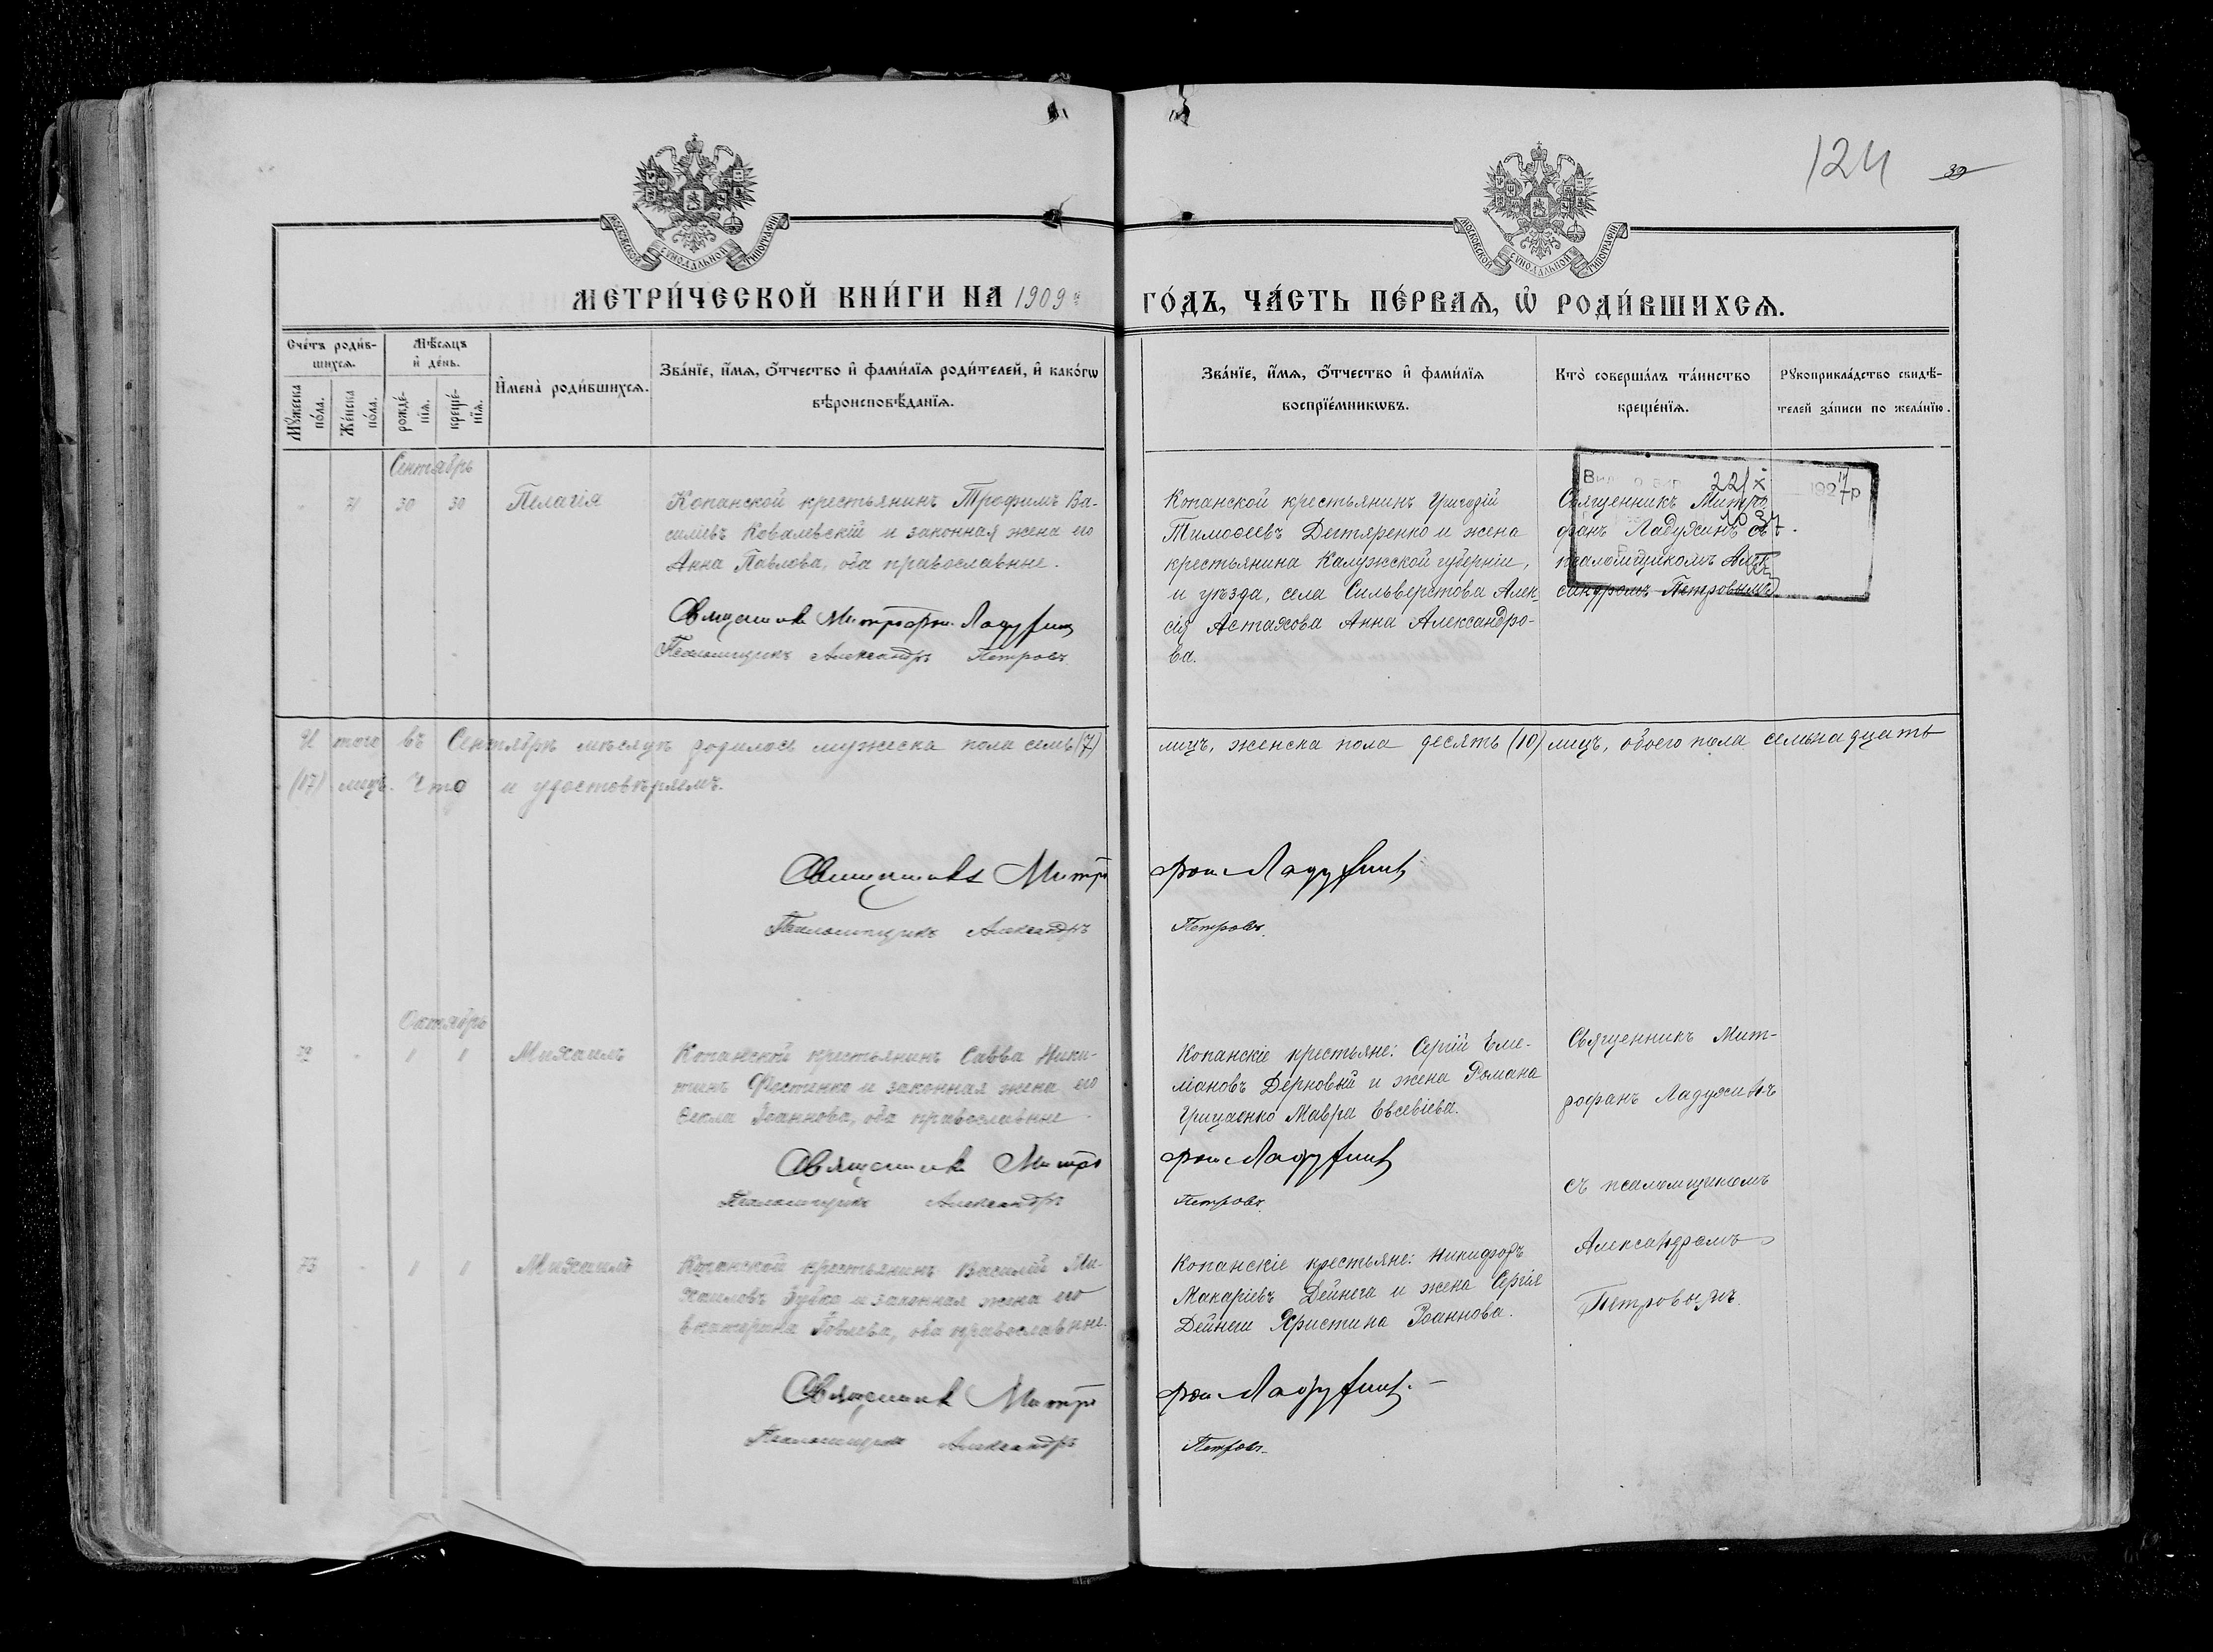 124 39
МОСКОВСКОЙ СѴНОДАЛЬНОЙ ТИПОГРАФІИ
МОСКОВСКОЙ СѴНОДАЛЬНОЙ ТИПОГРАФІИ
МЕТРИ́ЧЕСКОЙ КНИ́ГИ НА 1909
ГО́ДЪ, ЧА́СТЬ ПЕ́РВАѦ, Ѡ҆ РОДИ́ВШИХСѦ.
Сче́тъ роди́в-
шихсѧ.
Мꙋ́жеска по́ла.
Же́нска по́ла.
Мѣ́сѧцъ и҆ де́нь.
рожде́-нїѧ.
креще́-нїѧ.
И҆мена̀ роди́вшихсѧ.
Зва́нїе, и҆́мѧ, ѻ҆́тчество и҆ фами́лїѧ роди́телей, и҆ како́гѡ
вѣроисповѣ́данїѧ.
Зва́нїе, и҆́мѧ, ѻ҆́тчество и҆ фами́лїѧ
воспрїе́мникѡвъ.
Кто̀ соверша́лъ та́инство
креще́нїѧ.
Рꙋкоприкла́дство свидѣ́-
телей за́писи по жела́нїю.
Сентябрь
30 30 Пелагія
Копанской крестьянинъ Трофимъ Ва-
сильевъ Ковалевскій и законная жена его
Анна Павлова, оба православные.
Священникъ Митрофанъ Ладужинъ
Псаломщикъ Александръ Петровъ.
Копанской крестьянинъ Григорій
Тимоѳеевъ Дегтяренко и жена
крестьянина Калужской губерніи,
и уѣзда, села Сильверстова Алек-
сія Астахова Анна Александро-
ва.
Священникъ Митро-
фанъ Ладужинъ съ
псаломщикомъ Алек-
сандромъ Петровымъ
22/X 1927р
37.
И того въ Сентябрѣ мѣсяцѣ родилось мужеска пола семь (7)
лицъ, женска пола десять (10) лицъ, обоего пола семьнадцать
(17) лицъ. Что и удостовѣряемъ.
Священникъ Митро
фанъ Ладужинъ
Псаломщикъ Александръ
Петровъ.
Октябрь
72 1 1 Михаилъ
Копанской крестьянинъ Савва Ники-
тинъ Фостенко и законная жена его
Ѳекла Іоаннова, оба православные.
Священникъ Митро
Псаломщикъ Александръ
Копанскіе крестьяне: Сергій Еме-
ліановъ Дерновый и жена Романа
Грищенко Мавра Евсевіева.
фанъ Ладужинъ
Петровъ.
Священникъ Мит-
рофанъ Ладужинъ
съ псаломщикомъ
Александромъ
Петровымъ.
73 1 1 Михаилъ
Копанской крестьянинъ Василій Ми-
хаиловъ Зубко и законная жена его
Екатерина Іовлева, оба православные.
Священникъ Митро
Псаломщикъ Александръ
Копанскіе крестьяне: Никифоръ
Макаріевъ Дейнега и жена Сергія
Дейнеги Христина Іоаннова.
фанъ Ладужинъ.
Петровъ.